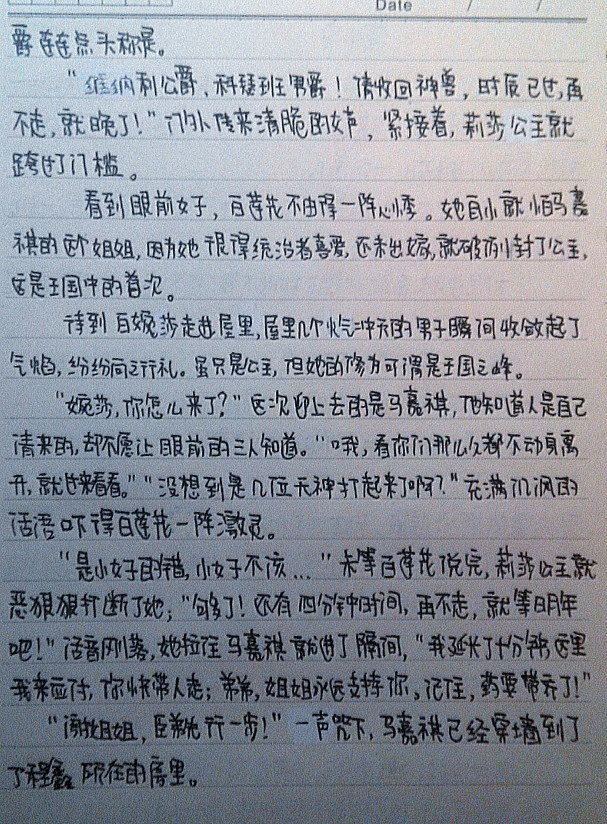 Date / /
爵连连点头称是。
"维纳利公爵,科瑟班男爵!请收回神兽,时辰已过,再
不走,就晚了!"门外传来清脆的女声,紧接着,莉莎公主就
跨过了门槛。
看到眼前女子,百莲花不由得一阵心悸。她自小就怕马嘉
祺的这个姐姐,因为她很得统治者喜爱,还未出嫁,就破例封了公主,
这是王国中的首次。
待到百婉莎走进屋里,屋里几个火气冲天的男子瞬间收敛起了
气焰,纷纷向之行礼。虽只是公主,但她的修为可谓是王国之峰。
"婉莎,你怎么来了?"这次迎上去的是马嘉祺,他知道人是自己
请来的,却不愿让眼前的三人知道。"哦,看你们那么久都不动身离
开,就进来看看。""没想到是几位天神打起来了啊?"充满讥讽的
话语吓得百莲花一阵激灵。
"是小女子的错,小女子不该..."未等百莲花说完,莉莎公主就
恶狠狠打断了她;"够了!还有四分钟时间,再不走,就等明年
吧!"话音刚落,她拉住马嘉祺就进了瞬间,"我延长了十分钟,这里
我来应付,你快带人走;弟弟,姐姐永远支持你,记住,药要带齐了!"
"谢谢姐姐,臣弟先行一步!"一声咒下,马嘉祺已经穿墙到了
了程鑫所在的房里。